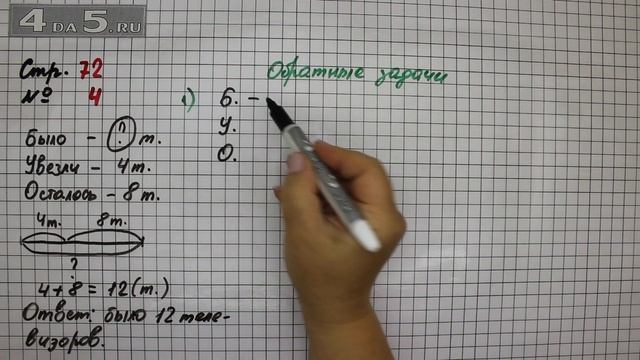 4DA5.RU
Стр. 72
№ 4
Было - ? т.
Увезли - 4 т.
Осталось - 8 т.
4т. 8т.
?
4 + 8 = 12 (т.)
Ответ: было 12 теле-
визоров.
Обратные задачи
1) Б. -
У.
О.